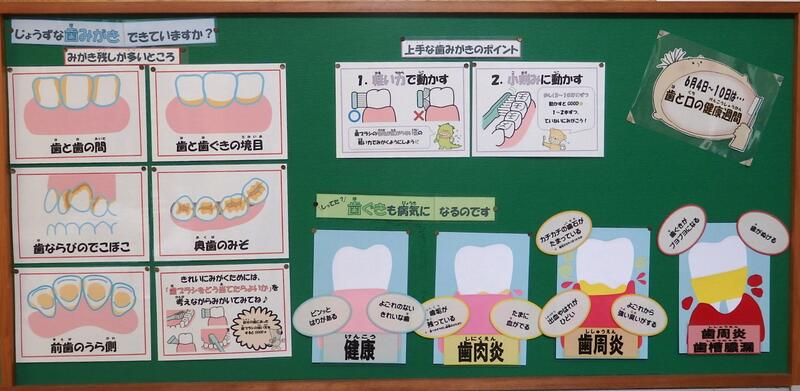 じょうずな歯みがき できていますか？
みがき残しが多いところ
歯と歯の間
歯と歯ぐきの境目
歯ならびのでこぼこ
奥歯のみぞ
前歯のうら側
きれいにみがくためには、
「歯ブラシをどう当てたらよいか」を
考えながらみがいてみてね♪
上手な歯みがきのポイント
1. 軽い力で動かす
軽い力でみがくようにしよう！
2. 小刻みに動かす
動かすとGOOD
1～2本ずつ、
ていねいにみがこう！
6月4日～10日は…
歯と口の健康週間
しってた？
歯ぐきも病気に なるのです
ピンッと
はりがある
よごれのない
きれいな歯
けんこう
健康
歯垢が
残っている
たまに
血がでる
しにくえん
歯肉炎
カチカチの歯石が
たまっている
出血やはれが
ひどい
よごれから
強い臭いがする
ししゅうえん
歯周炎
歯ぐきが
ブヨブヨになる
歯がぬける
歯周炎
歯槽膿漏